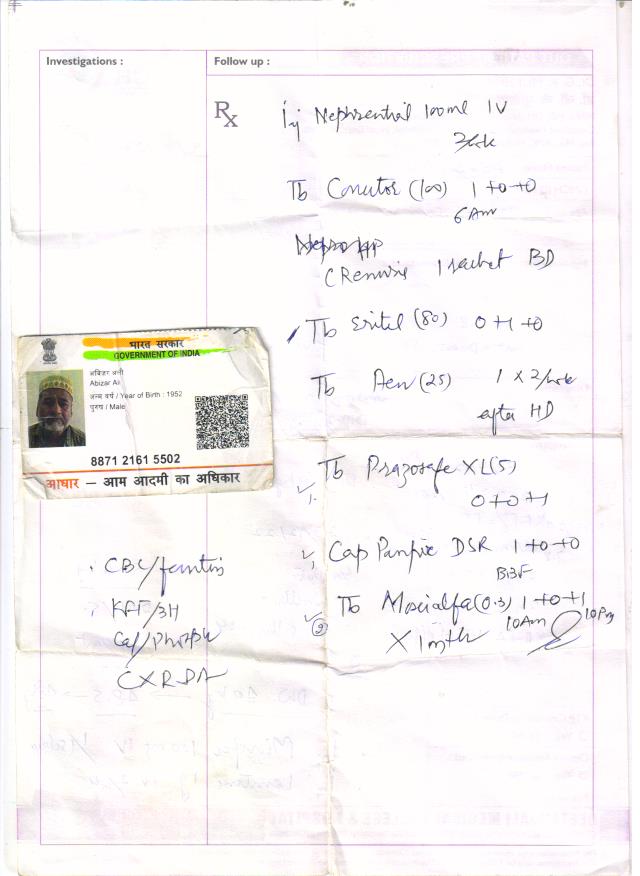 Investigations :
Follow up :
Rx
Inj Nephsential 100ml IV
2/wk
Tb (100) 1+0+0
6 Am
1 sachet BD
Tb Eritel (80) 0+1+0
Tb (25) 1 x 2/wk
after HD
Tb Prazosafe XL(5)
0+0+1
Cap DSR 1+0+0
BBF
Tb (0.3) 1+0+1
10Am 10Pm
X 1mth
भारत सरकार
GOVERNMENT OF INDIA
अबिज़र अली
Abizar Ali
जन्म वर्ष / Year of Birth : 1952
पुरुष / Male
8871 2161 5502
आधार – आम आदमी का अधिकार
CBC/ferritin
KFT/3H
Cal/Phosph
CXR PA